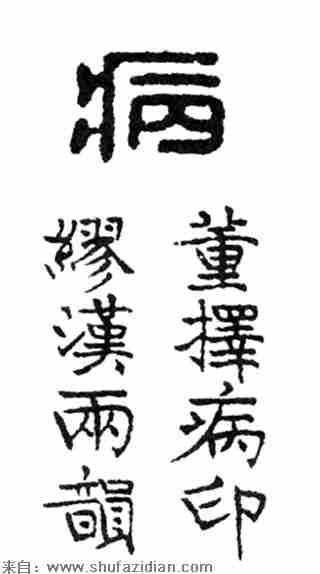 病
董擇病印
繆漢兩韻
来自：www.shufazidian.com